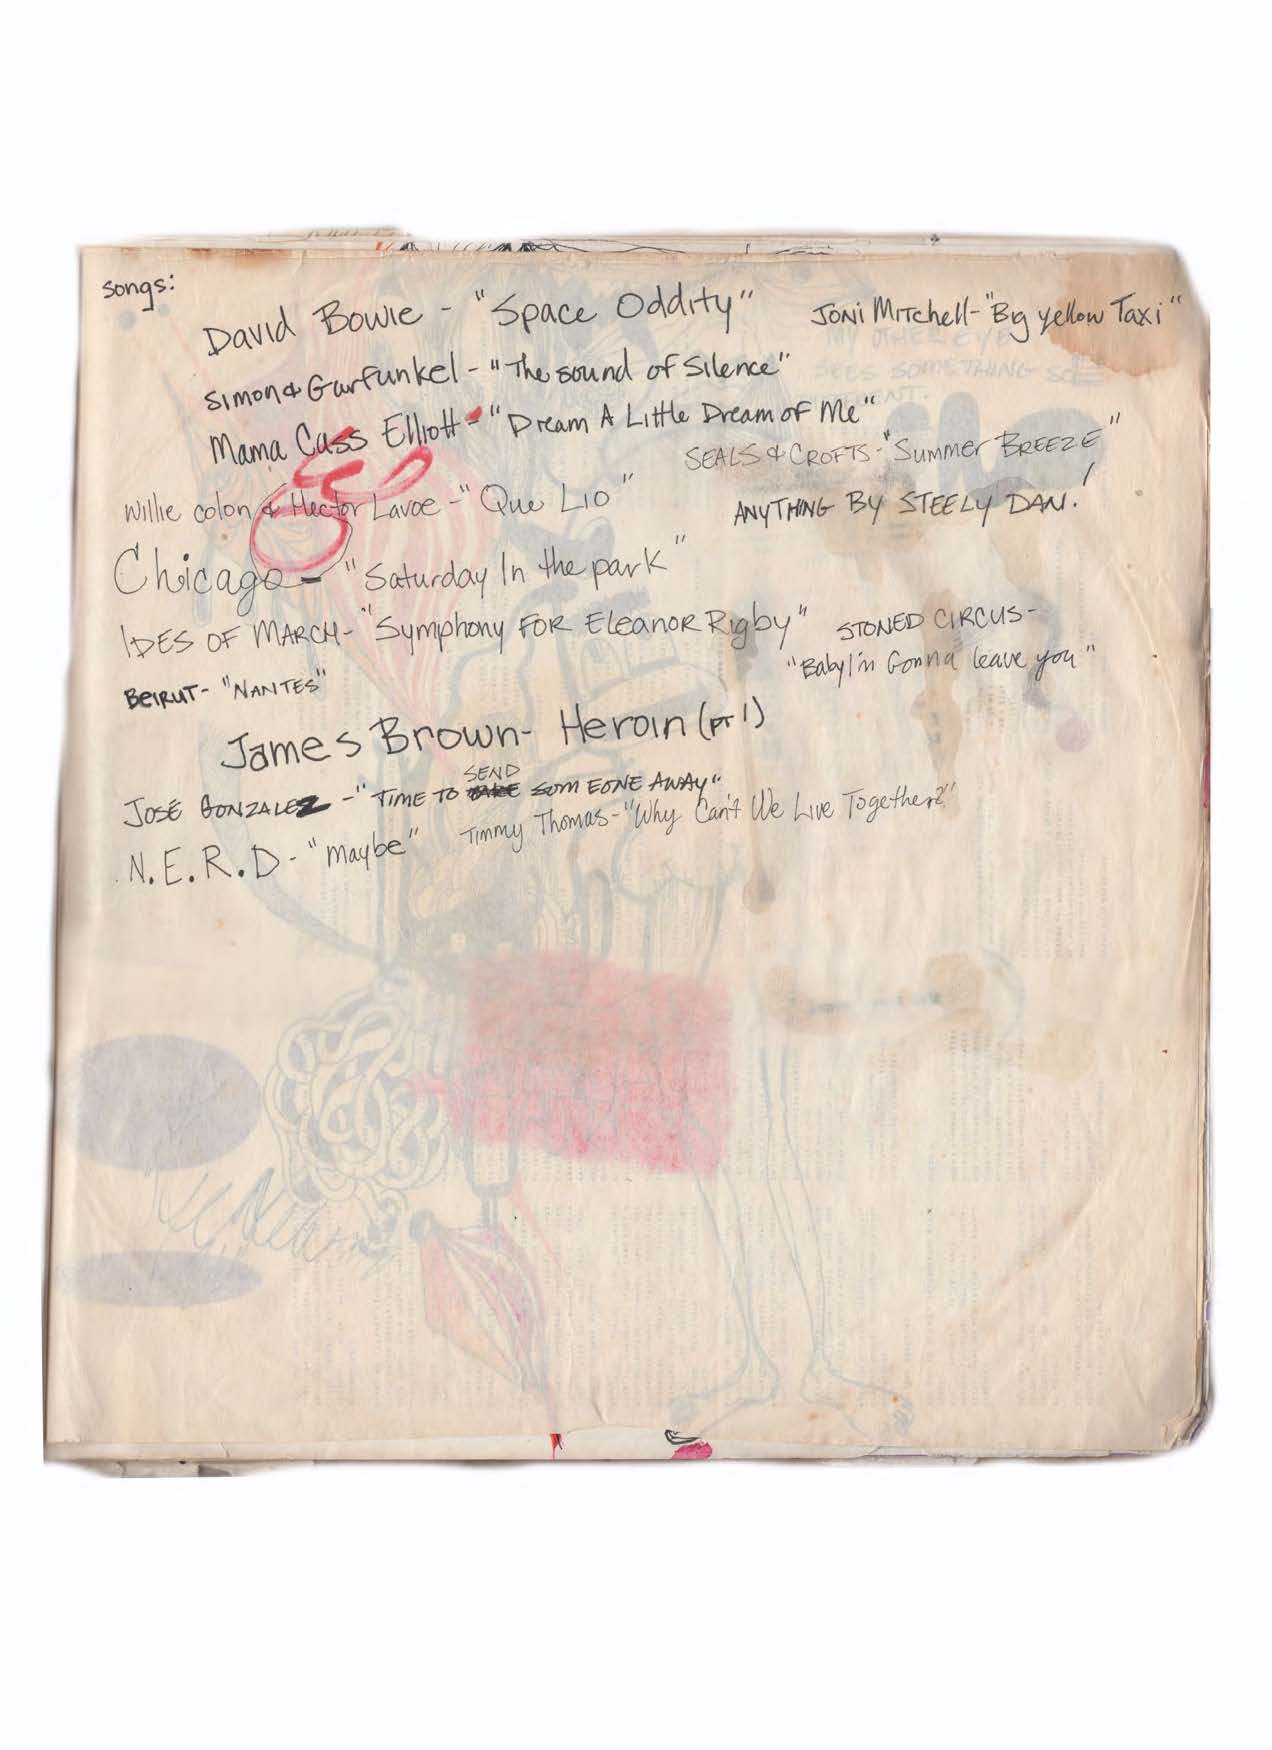 songs:
David Bowie - "Space Oddity"
Joni Mitchell- "Big yellow Taxi"
Simon & Garfunkel - "The sound of Silence"
Mama Cass Elliott - "Dream A Little Dream of Me"
SEALS & CROFTS - "Summer BREEZE"
Willie colon & Hector Lavoe - "Que Lio"
ANYTHING BY STEELY DAN!
Chicago - "Saturday In the park"
IDES OF MARCH - "Symphony FOR EleanoR Rigby"
STONED CIRCUS -
"Baby I'm Gonna leave you"
BEIRUT - "NANTES"
James Brown - Heroin (PT 1)
JOSÉ GONZALEZ - "TIME TO SEND SOMEONE AWAY"
Timmy Thomas - "Why Can't We Live Together?"
N.E.R.D - "Maybe"
MY OTHER EYE
SEES SOMETHING